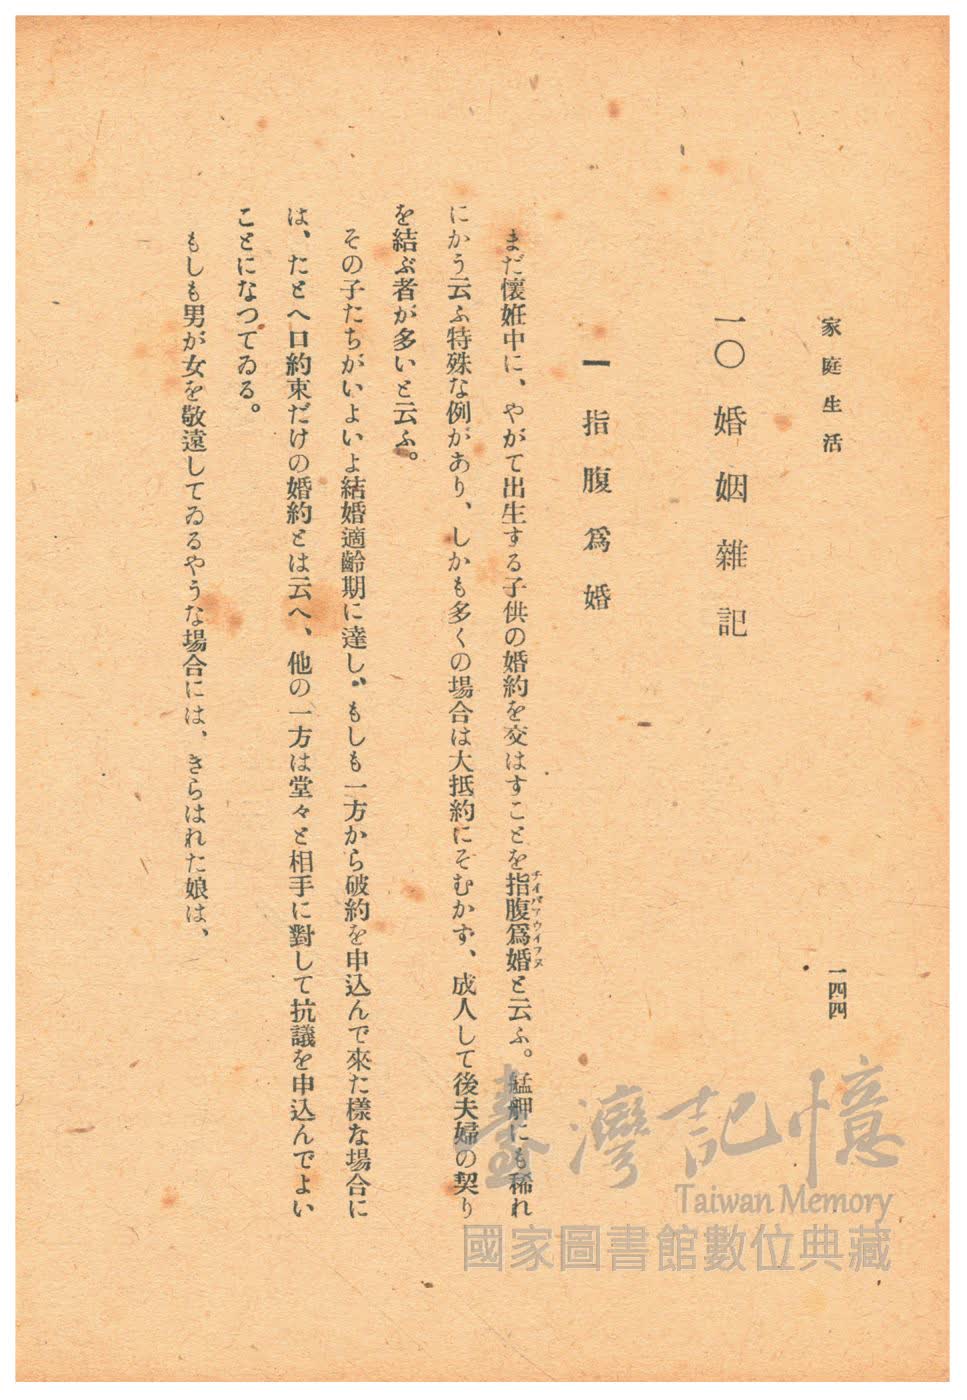 家庭生活
一四四
一〇 婚姻雜記
一 指腹爲婚
まだ懷姙中に、やがて出生する子供の婚約を交はすことを指腹爲婚と云ふ。艋舺にも稀れ
チイパァウイフヌ
にかう云ふ特殊な例があり、しかも多くの場合は大抵約にそむかず、成人して後夫婦の契り
を結ぶ者が多いと云ふ。
その子たちがいよいよ結婚適齡期に達し、もしも一方から破約を申込んで來た樣な場合に
は、たとへ口約束だけの婚約とは云へ、他の一方は堂々と相手に對して抗議を申込んでよい
ことになつてゐる。
もしも男が女を敬遠してゐるやうな場合には、きらはれた娘は、
臺灣記憶
Taiwan Memory
國家圖書館數位典藏